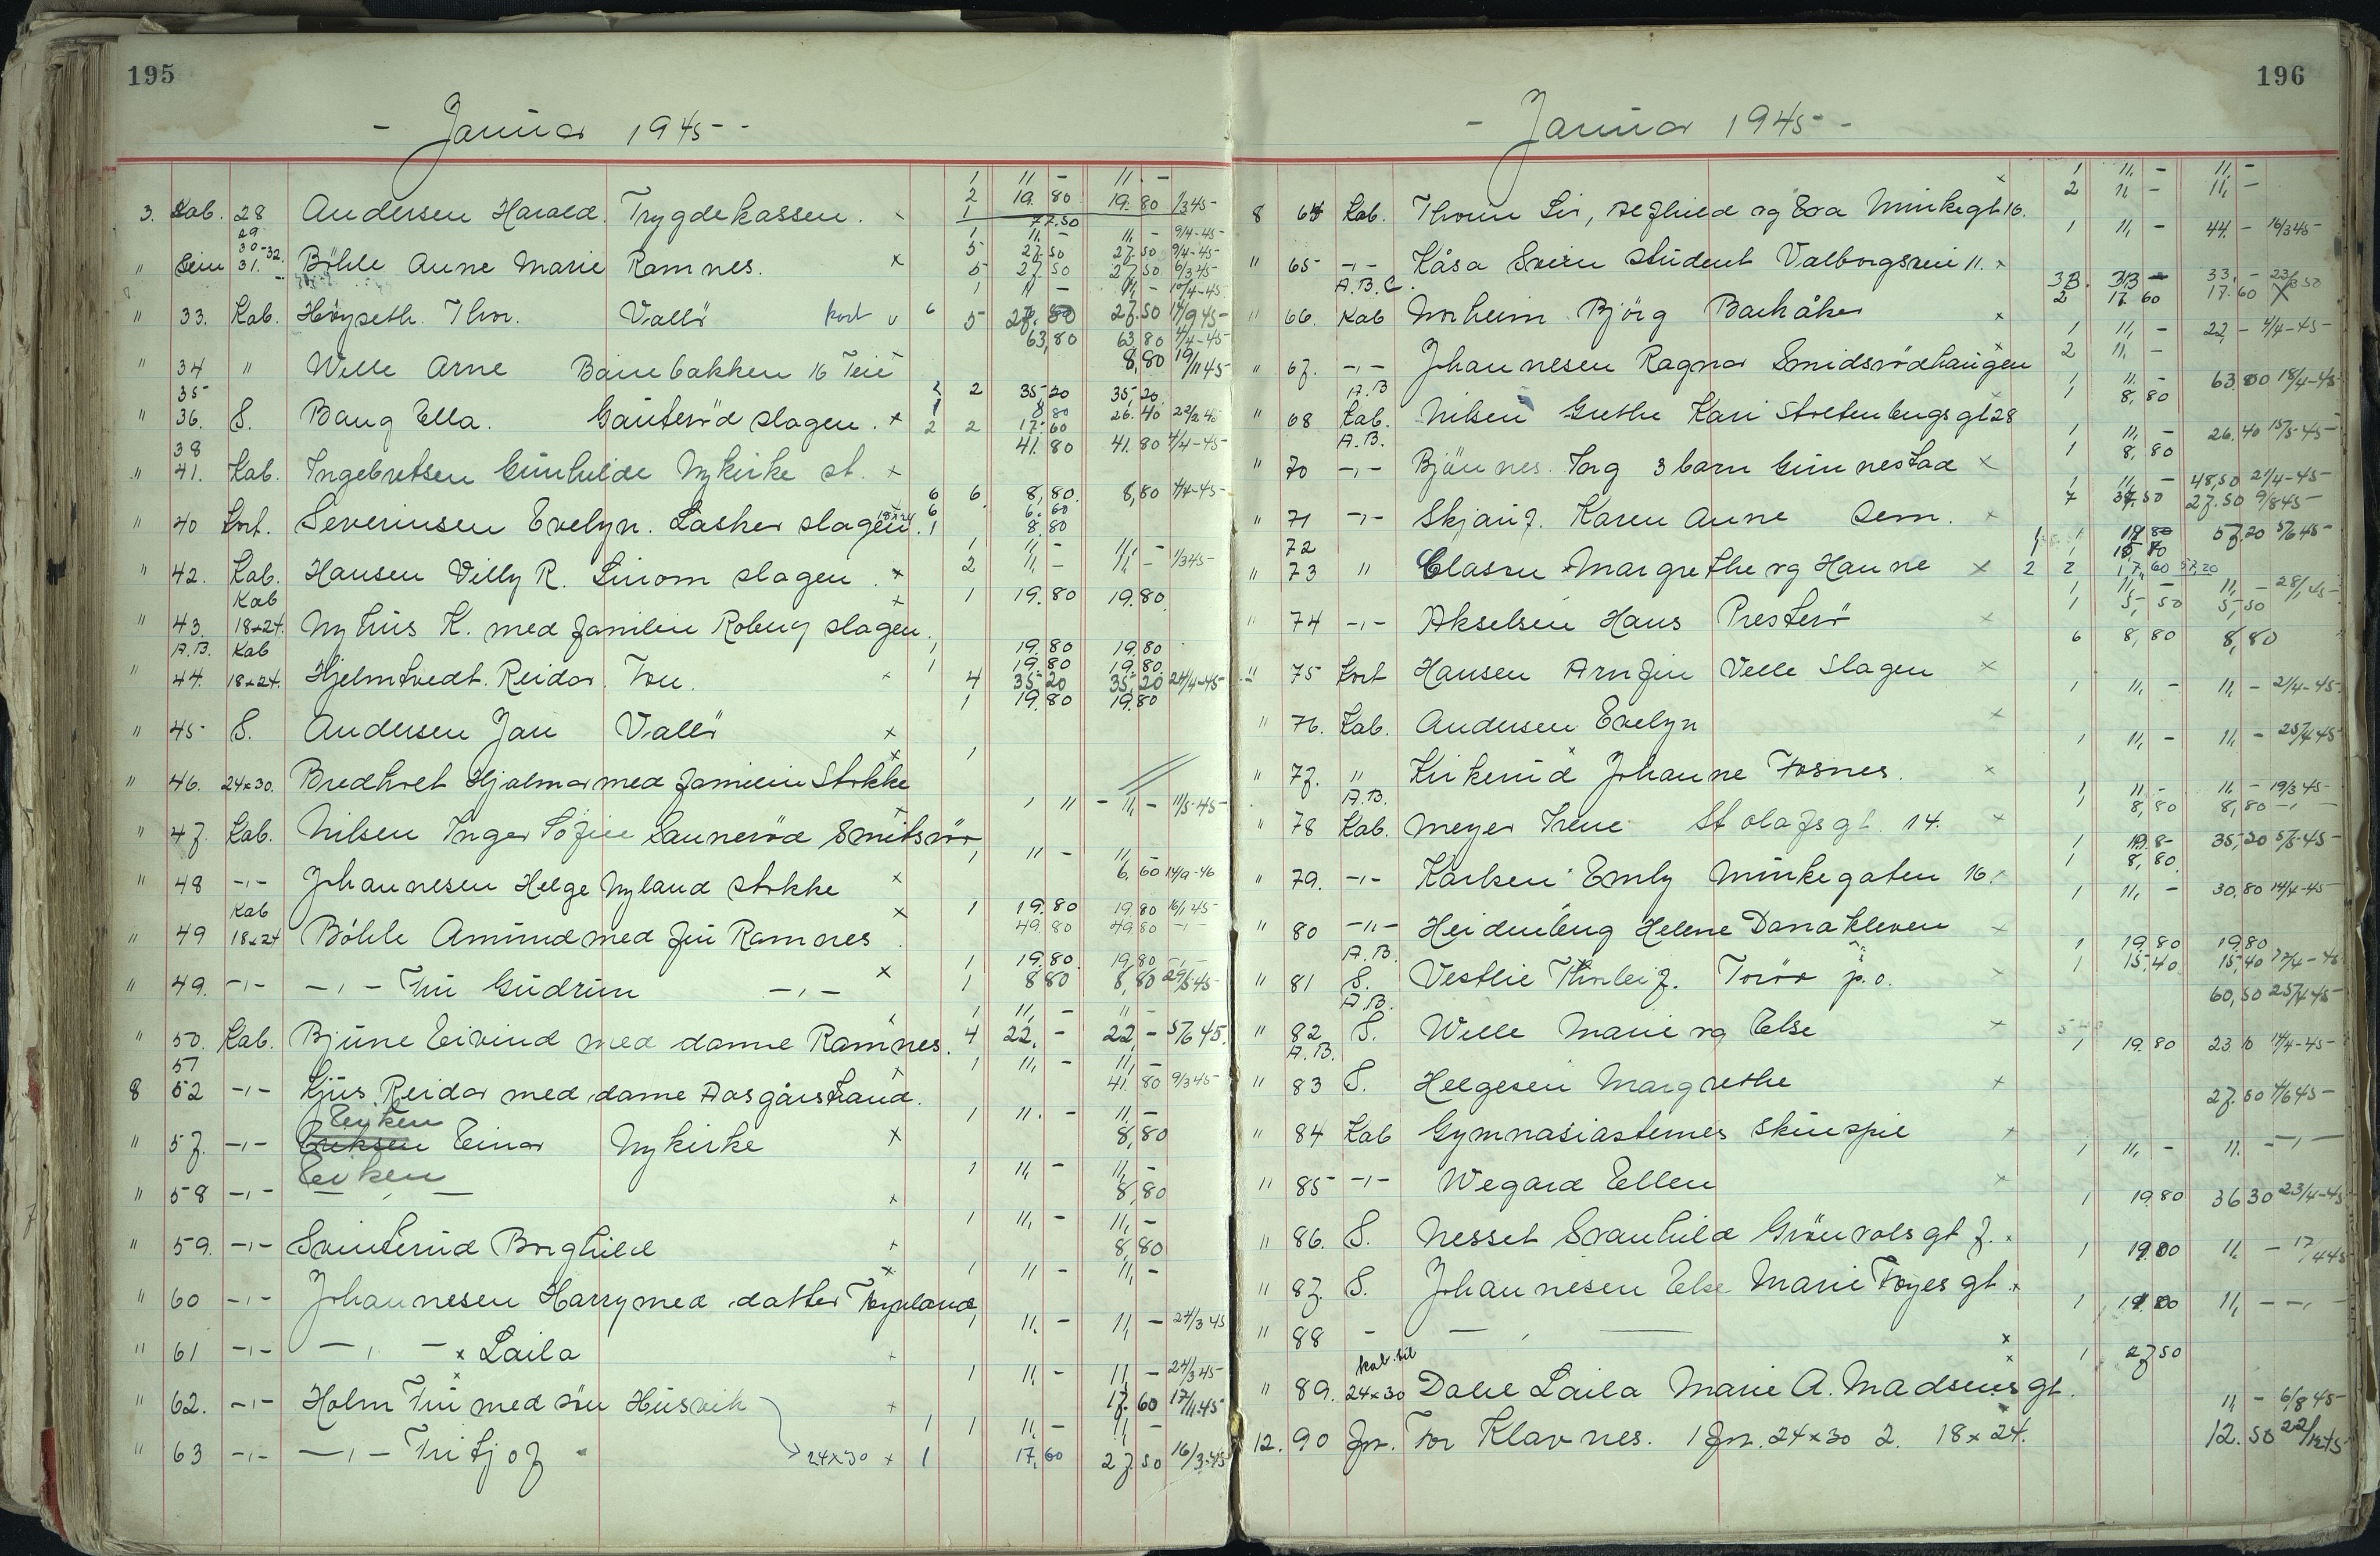 195
- Januar 1945 -
1 11 - 11. -
2 19.80 19.80 1/3 45
3. Kab. 28 Andersen Harald. Trygdekassen. x 1 77.50
29 1 11, - 11, - 9/4-45
30-32. 5 27.50 27.50 9/4-45
" 31. Böhle Anne Marie Ramnes. x 5 27.50 27.50 6/3 45
1 11 - 11, - 10/4-45
" 33. Kab. Höyseth. Thor. Vallö kort v 6 5 27.50 14/9 45
63,80 63,80 4/4-45
8,80 19/11 45
" 34 " Wille Arne Bannbakken 16 Teie
35 2 35,20 35,20
8 80 26.40 22/2 45
" 36. S. Bang Ella. Gauteröd Slagen. x 2 2 17.60
38 41.80 41.80 4/4-45
" 41. Kab. Ingebretsen Gunhilde Nykirke st. x
6 6 8,80. 8,80 4/4-45
6 6.60
" 40 Kort. Severinsen Evelyn. Lasken Slagen. 18x24 1 8.80
1 11, - 11, -
" 42. Kab. Hansen Villy R. Linom Slagen. x 2 11, - 11, - 1/3 45
Kab x 1 19.80 19.80
" 43. 18x24. Nyhus K. med familie Roberg Slagen.
A.B. Kab 1 19.80 19.80
1 19.80 19.80
" 44. 18x24. Hjelmtvedt. Reidar. Tou. x 4 35,20 35,20 24/4-45
1 19.80 19.80
" 45 S. Andersen Jan Vallö x
x 1
" 46. 24x30. Bredtvet Hjalmar med familie Stokke
x 1 11 - 11, - 11/5-45
" 47. Kab. Nilsen Inger Sofie Launeröd Smitsrör
1 11 - 11, -
" 48 -,- Johannesen Helge Nyland Stokke x 6.60 14/9-46
Kab x 1 19.80 19.80 16/1 45
" 49 18x24 Böhle Amund med fru Ramnes. 49.80 49.80 -,-
1 19.80. 19.80 -,-
" 49. -,- -,- Fru Gudrun -,- x 1 8 80 8,80 29/5-45
1 11, - 11 -
" 50. Kab. Bjune Eivind med dame Ramnes. 4 22, - 22, - 5/6 45.
51 x 1 11, - 11, -
8 52 -,- Kjus Reidar med dame Aasgårstrand. 41.80 9/3 45
Eriken 1 11. - 11, -
" 57. -,- Eriksen Einar Nykirke x 8,80
Eriken 1 11, - 11, -
" 58 -,- — , — x 8,80
1 11, - 11, -
" 59. -,- Svinterud Borghild x 8,80
x 1 11 - 11, -
" 60 -,- Johannesen Harry med datter Föynland
1 11, - 11, - 24/3 45
" 61 -,- — , — x Laila x
x 1 11, - 11, - 24/3 45
" 62. -,- Holm Fru med sön Husvik x 17.60 17/11.45
1 1 11, - 11, -
" 63 -,- -,- Fritjof 24x30 x 1 17,60 27.50 16/3-45
196
- Januar 1945 -
1 11, - 11, -
x 2 11 - 11, -
8 64 Kab. Thorn Liv, Alfhild og Eva Munkegt 16.
1 11, - 44. - 16/3 45
" 65 -,- Kåsa Svein Student Valborgsvei 11. x
A.B.C. 3B. 33 - 33, -
2 17 60 17.60
" 66. Kab Norheim Björg Barkåker x
1 11, - 22, - 4/4-45
2 11, -
" 67. -,- Johannesen Ragnar Smidsrödhaugen
A.B 1 11. - 63.80 18/4-45
1 8,80
" 68 Kab. Nilsen Grethe Kari Stoltenbergs gt 28
A.B. 1 11, - 26.40 15/5-45
1 8,80
" 70 -,- Björnnes. Torg 3 barn Gunnestad x
1 11, - 48,50 21/4-45
7 37.50 27.50 9/8 45
" 71 -,- Skjauf. Karen Anne Sem. x
72 57.20 5/6 45
" 73 " Classen Margrethe og Hanne x 2 2 17,60 57,20
1 11, - 11, - 28/1 45
1 5,50 5,50
" 74 -,- Akselsen Hans Presterö x
6 8,80 8,80
" 75 Kort Hansen Arnfin Velle Slagen x
1 11, - 11, - 21/4-45
" 76. Kab. Andersen Evelyn x
1 11, - 11, - 25/4 45
" 77. " Kirkerud Johanne Fosnes. x
A.B. 1 11 - 11, - 19/3 45
1 8,80 8,80 -,-
" 78 Kab. Meyer Irene St olafsgt. 14. x
1 19.8- 35,20 5/5-45
1 8,80
" 79. -,- Karlsen Emly Munkegaten 16.
1 11, - 30,80 14/4-45
" 80 -,- Heidenberg Helene Dana Kleven x
A.B. 1 19.80 19.80
1 15,40 15,40
" 81 S. Vestlie Thorleif. Torör p.o. x
A.B. 60,50 25/4 45
" 82 S. Wille Marie og Else x
A.B. 1 19.80 23 10 14/4-45
" 83 S. Helgesen Margrethe x
27.50 4/6 45
" 84 Kab Gymnasiasternes Skuespil x
1 11, - 11. - -,-
" 85 -,- Wegard Ellen x
1 19.80 36 30 23/4-45
" 86. S. Nesset Svanhild Grönvolsgt 7. x
1 19.80 11, - 17/4 45
" 87. S. Johannesen Else Marie Föyesgt x
1 19.80 11, - -,-
" 88 - — , — x
kab. bil x 1 27 50
" 89. 24x30 Dahl Laila Marie A. Madsensgt.
11, - 6/8 45
12. 90 fm. Tor Klavnes. 1 fm. 24x30 2. 18x24. 12.50 22/12 45